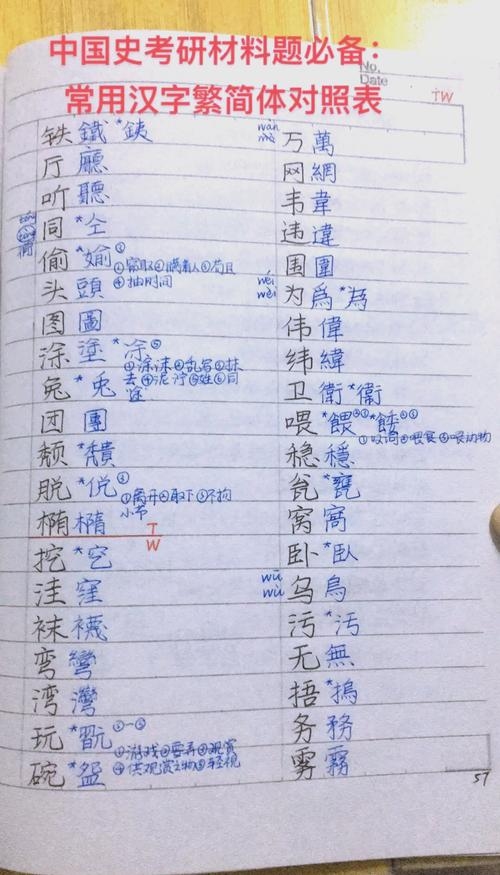 中国史考研材料题必备：
常用汉字繁简体对照表
No.
Date
TW
铁 鐵 *鉄
厅 廳
听 聽
同 *仝
偷 *媮①
①窃取②瞒着人③苟且
④抽时间
头 頭
图 圖
涂 塗 *凃⑥
①涂沫②乱写③抹
去④泥泞⑤姓⑥同
途
兔 *兎
团 團
颓 *穨
脱 *侻③
①离开②取下③不拘
小节
椭 橢
T
W
挖 *穵
洼 窪
袜 襪
弯 彎
湾 灣
玩 *翫①-⑤
①游戏②耍弄③观赏
④供观赏之物⑤轻视
碗 *盌
wàn
mò
万 萬
网 網
韦 韋
违 違
围 圍
wéi
wèi
为 爲 *為
伟 偉
纬 緯
卫 衛 *衞
喂 *餵②③ *餧②③
①叹词②喂食③喂动物
稳 穩
瓮 *甕
窝 窩
卧 *臥
wū
wù
乌 烏
污 *汚
无 無
捂 *摀
务 務
雾 霧
57